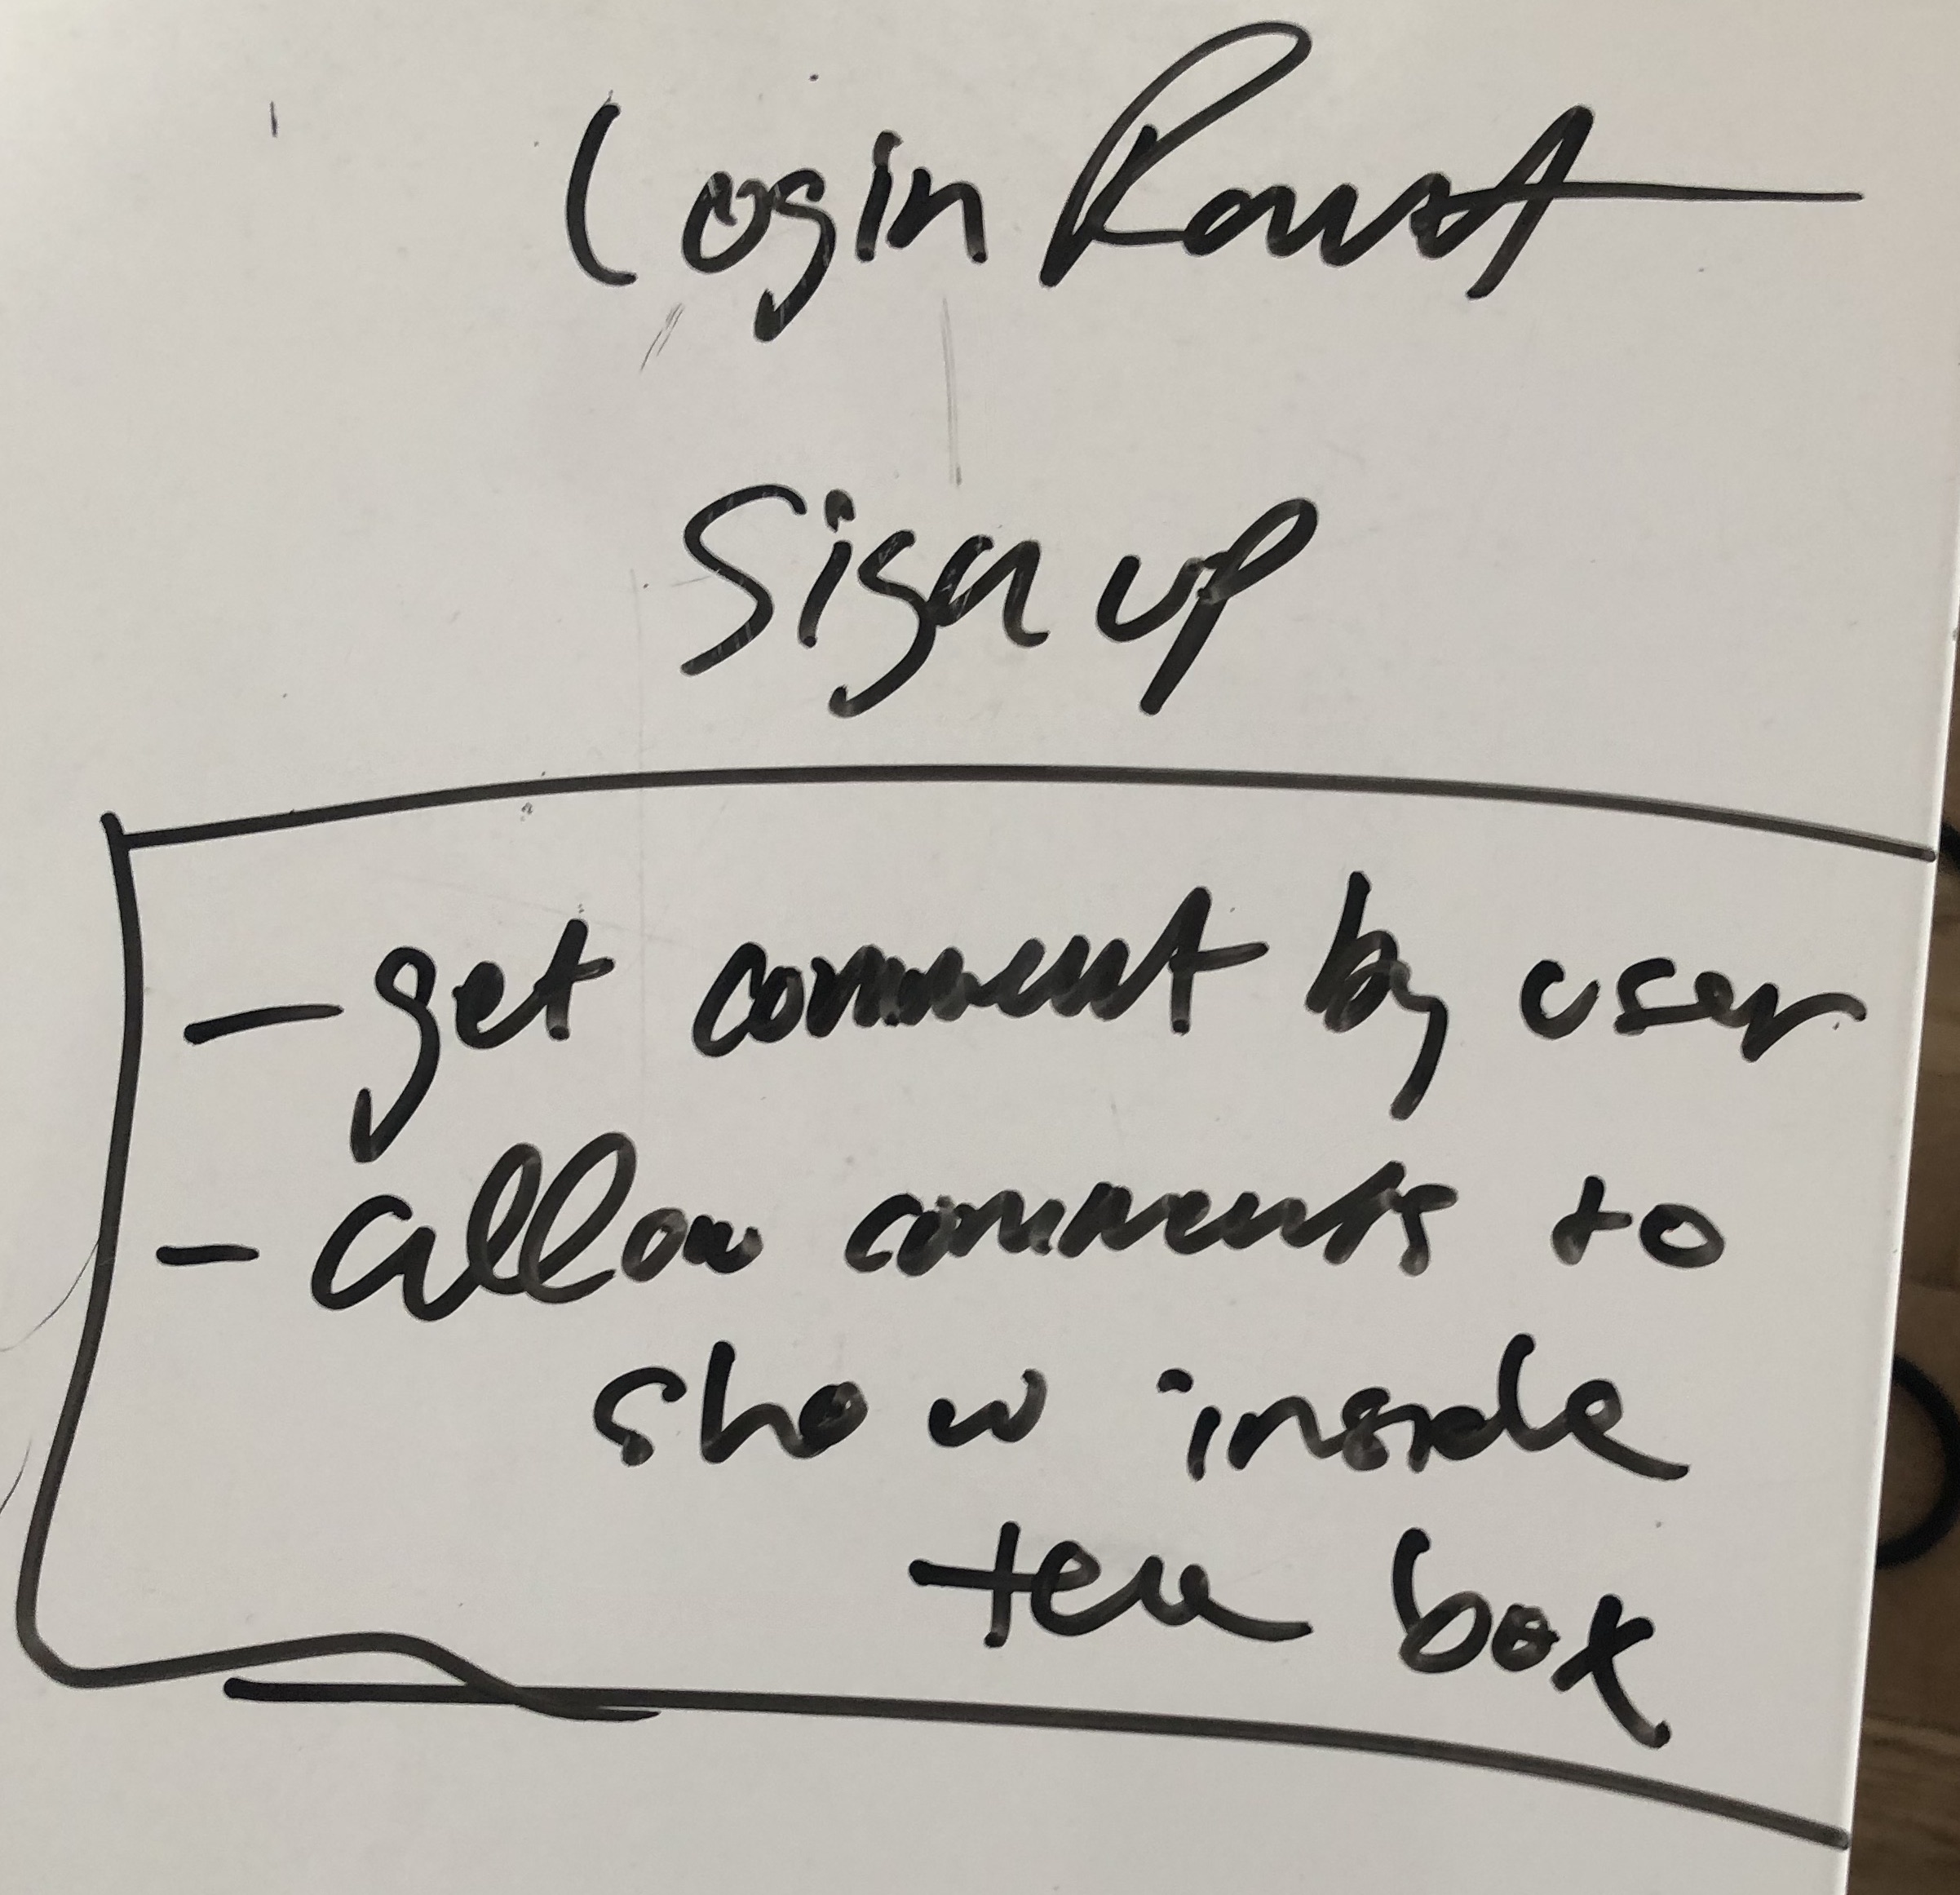 Login
Sign up
- get comment by user
- allow comments to
show inside
box